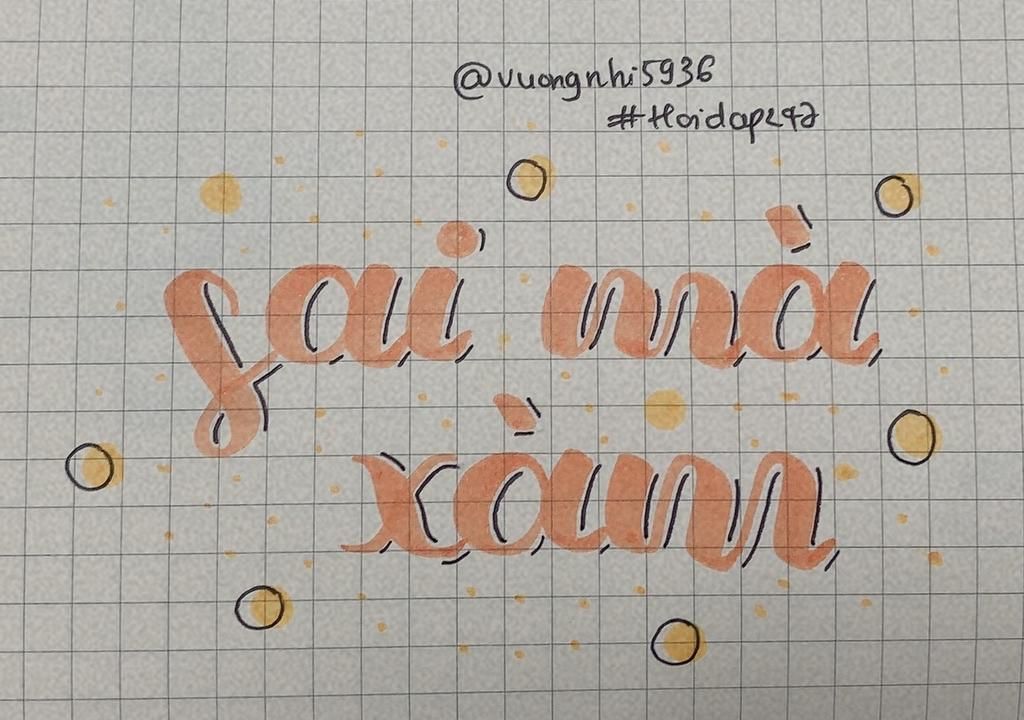 @vuongnhi5936
#Hoidap247
sai mà
xàm